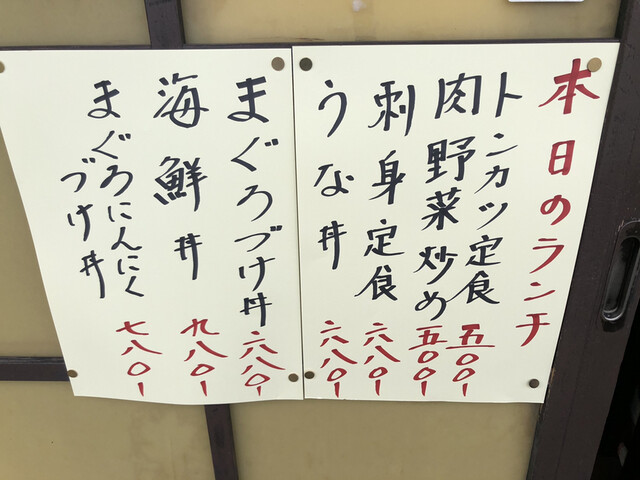 本日のランチ
トンカツ定食 五〇〇
肉野菜炒め 五〇〇
刺身定食 六八〇
うな丼 六八〇
まぐろづけ丼 六八〇
海鮮丼 九八〇
まぐろにんにく
づけ丼 七八〇